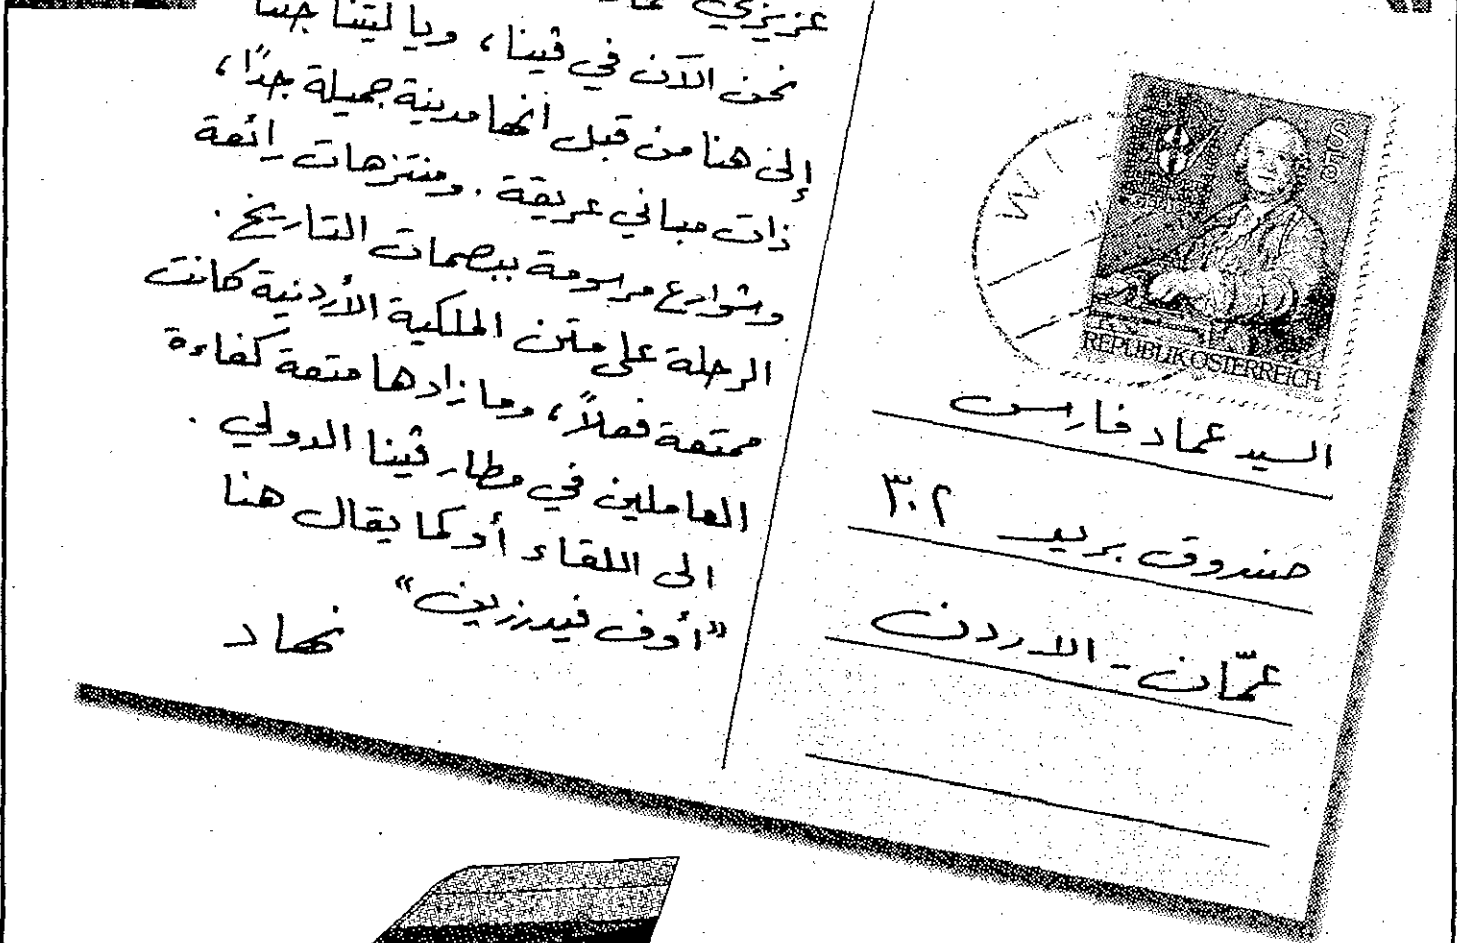 عزيزي
نحن الآن في ڤينا، ويا ليتنا جئنا
إلى هنا من قبل أنها مدينة جميلة جدًا،
ذات مباني عريقة . ومنتزهات رائعة
وشوارع مرسومة ببصمات التاريخ .
الرحلة على متن الملكية الأردنية كانت
ممتعة فعلاً، وما زادها متعة كفاءة
العاملين في مطار ڤينا الدولي .
الى اللقاء أو كما يقال هنا
"أوف فيدرزين"
نهاد
S 5
WI
REPUBLIK ÖSTERREICH
السيد عماد فارس
صندوق بريد ٣٠٢
عمّان - الاردن